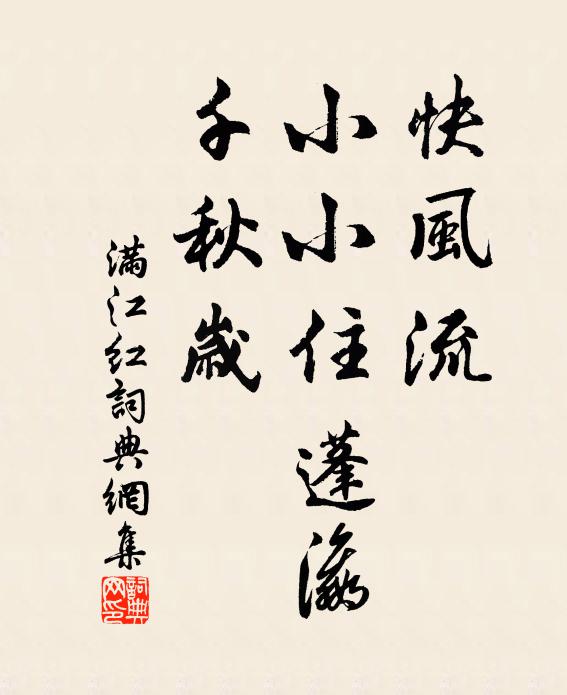 快風流
小小住蓬瀛
千秋歲
滿江紅詞典網集
詞典
网印